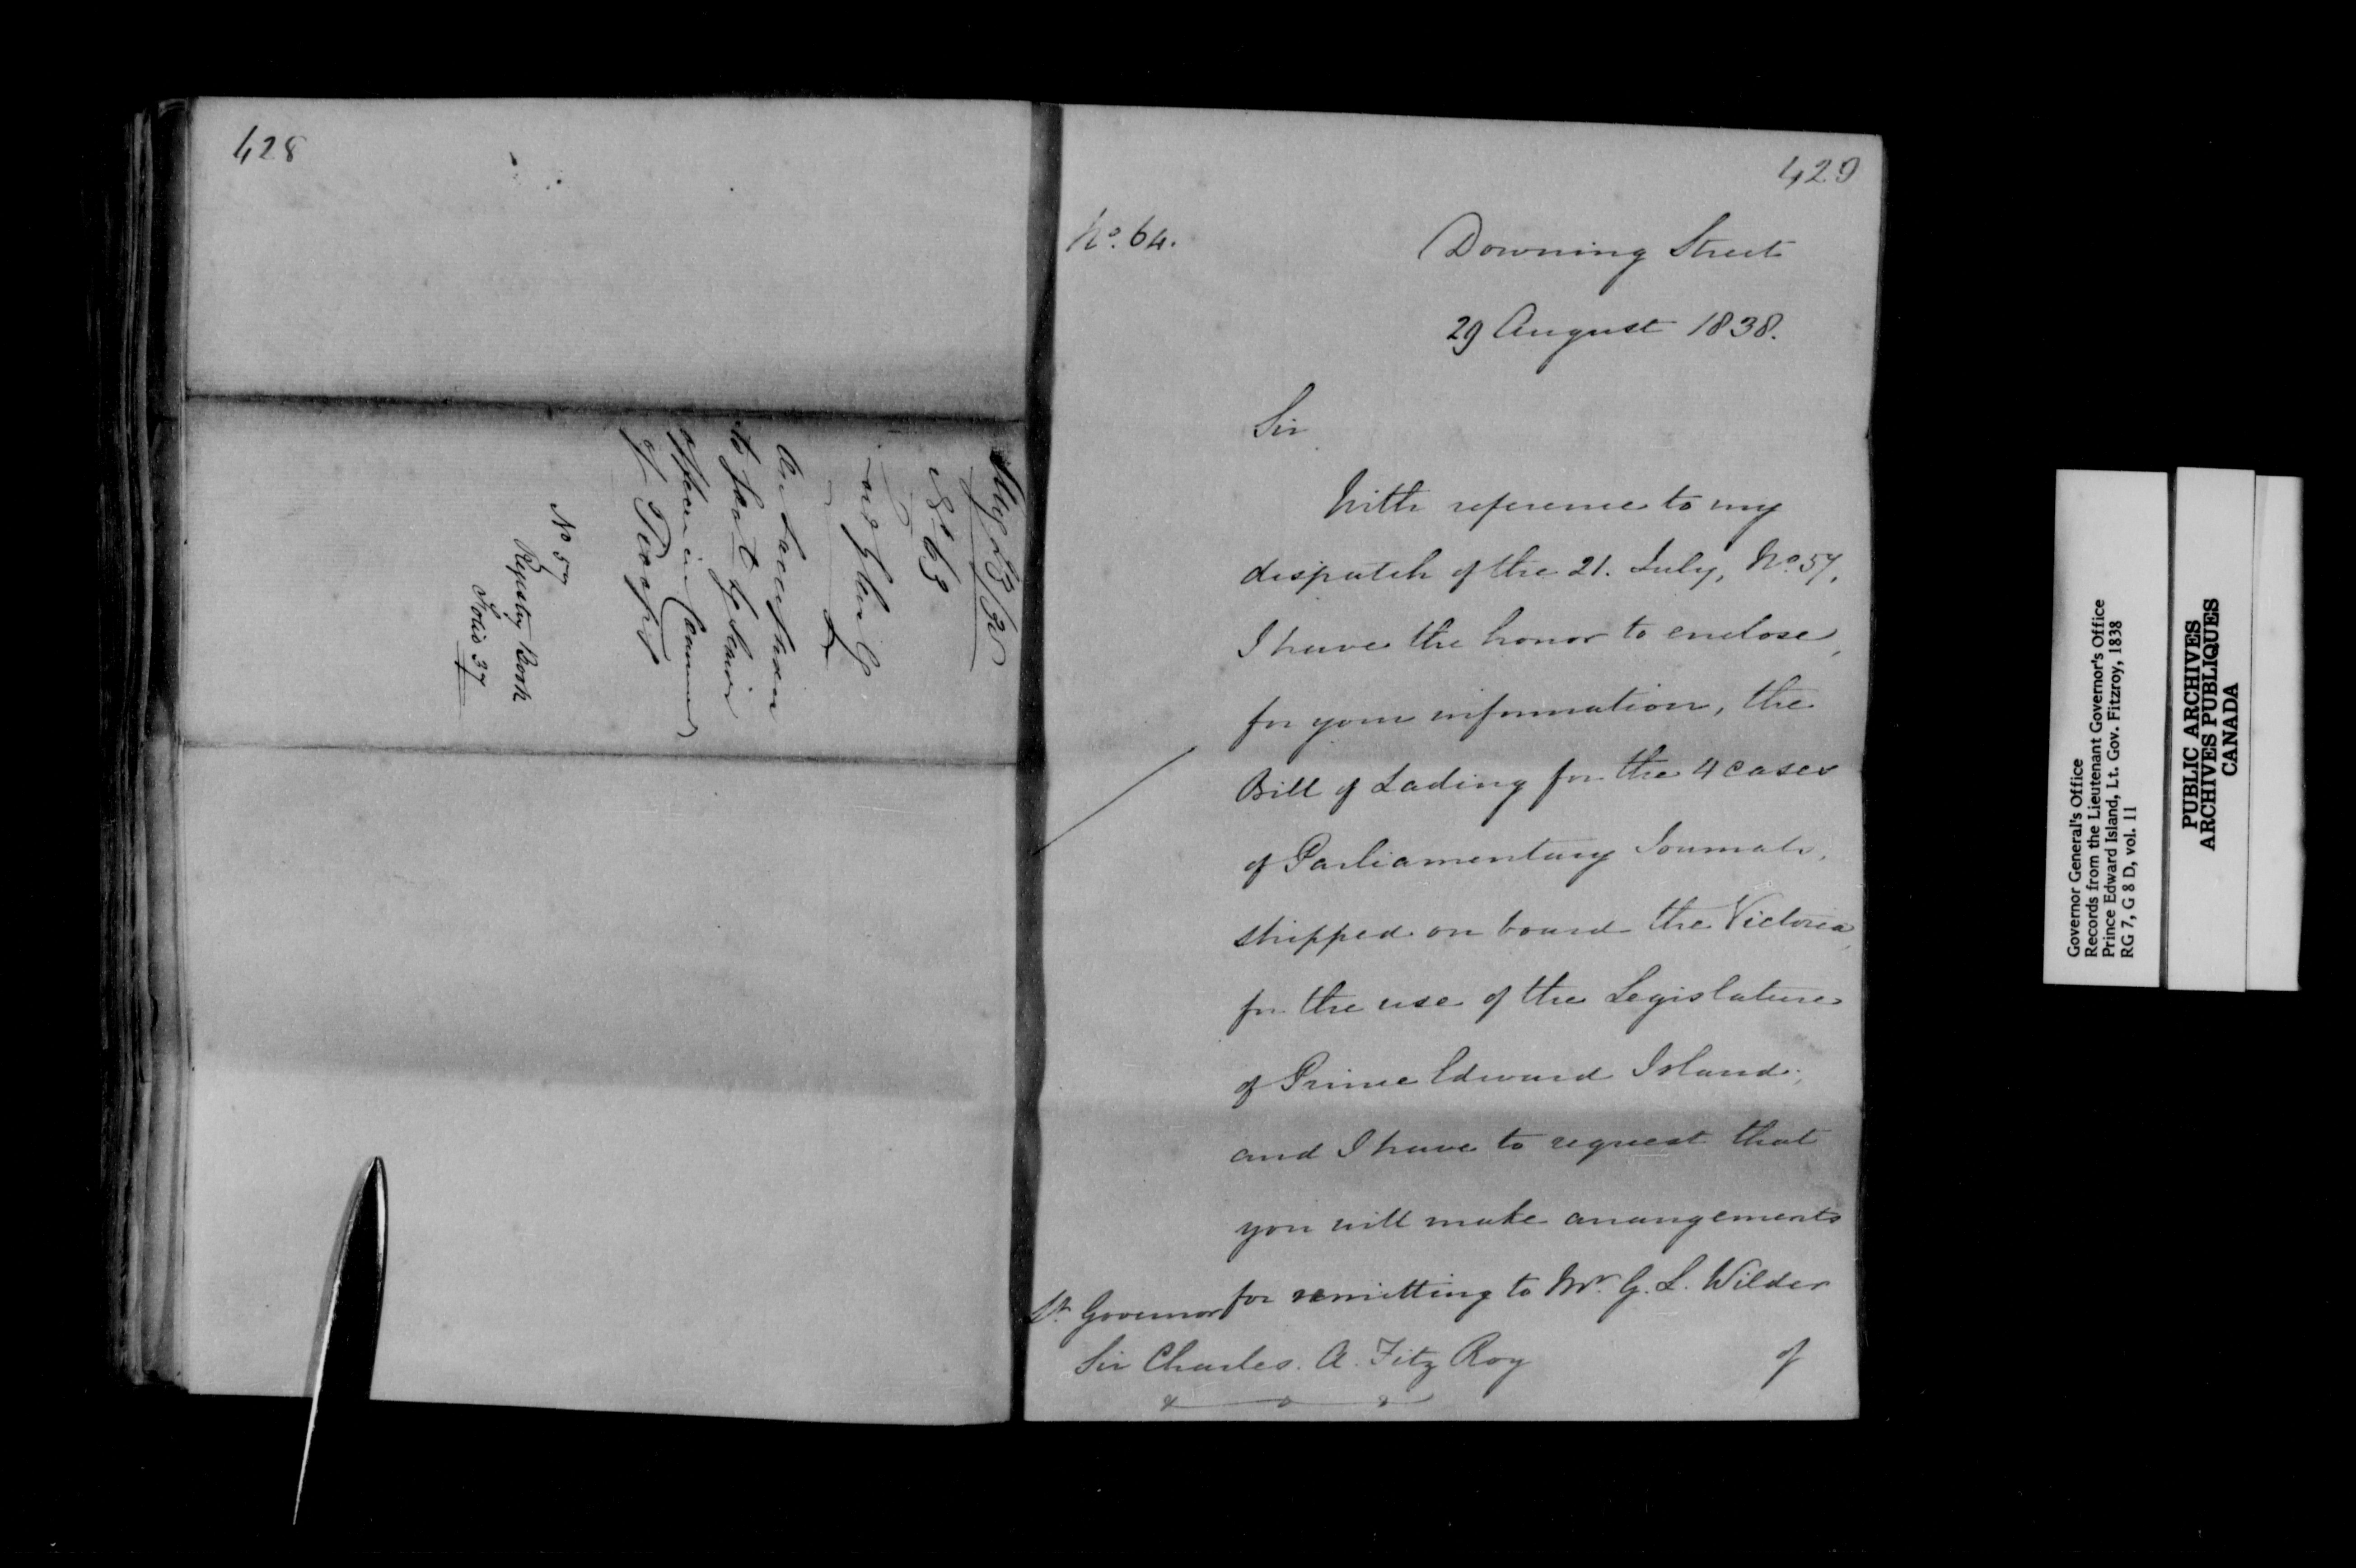 428
Augt 23/38
No 63
Lord Glenelg
on
to
officer in Command
of Troops
No 57
Registry Book
Folio 37
429
No. 64.
Downing Street
29 August 1838.
Sir
With reference to my
dispatch of the 21. July, No. 57,
I have the honor to enclose,
for your information, the
Bill of Lading for the 4 cases
of Parliamentary Journals,
shipped on board the Victoria,
for the use of the Legislature
of Prince Edward Island;
and I have to request that
you will make arrangements
for remitting to Mr. G. L. Wilder
Lt. Governor
Sir Charles. A. Fitz Roy
of
Governor General's Office
Records from the Lieutenant Governor's Office
Prince Edward Island, Lt. Gov. Fitzroy, 1838
RG 7, G 8 D, vol. 11
PUBLIC ARCHIVES
ARCHIVES PUBLIQUES
CANADA